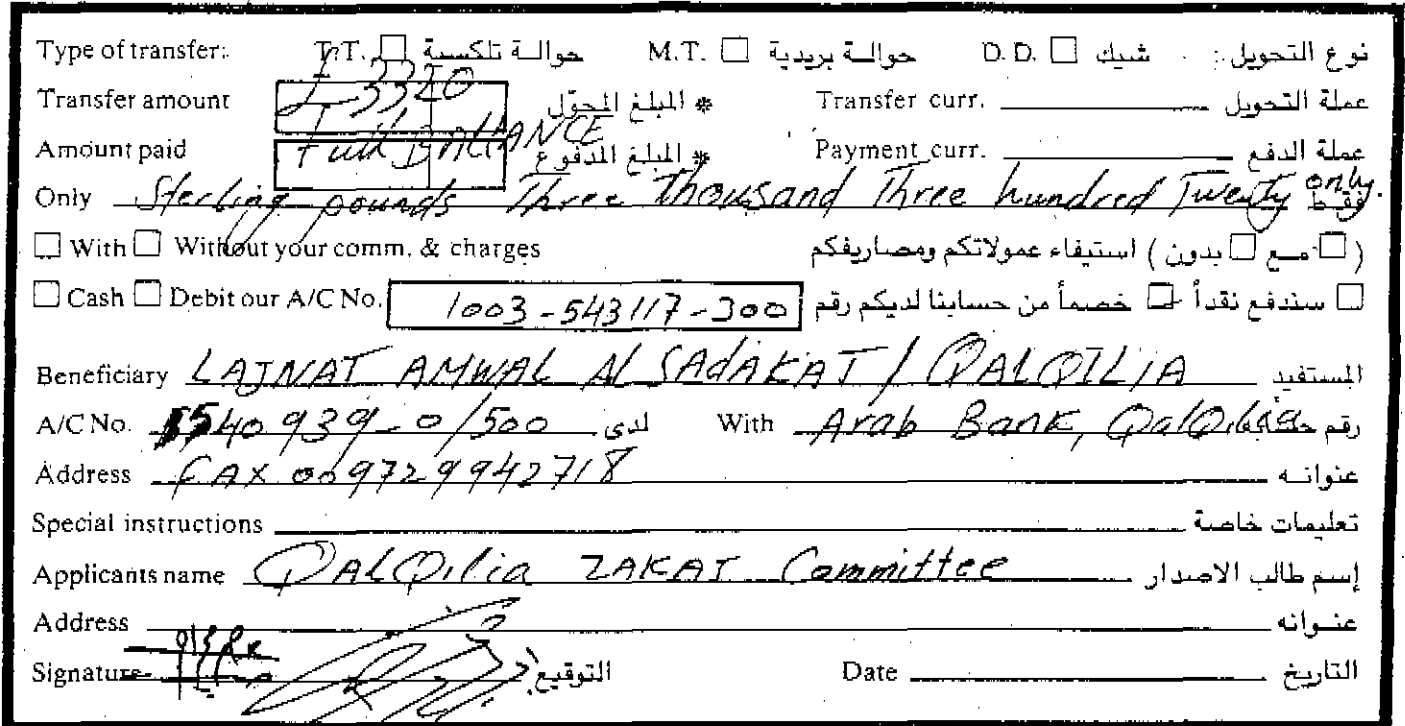 Type of transfer: T.T. ☐ حوالة تلكسية M.T. ☐ حوالة بريدية D.D. ☐ شيك نوع التحويل :
Transfer amount £ 3320 * المبلغ المحوّل Transfer curr. عملة التحويل
Amount paid Full BALIANCE * المبلغ المدفوع Payment curr. عملة الدفع
Only Sterling pounds Three Thousand Three hundred Twenty only. فقط
☐ With ☐ Without your comm. & charges ( ☐ مع ☐ بدون ) استيفاء عمولاتكم ومصاريفكم
☐ Cash ☐ Debit our A/C No. 1003-543117-300 ☐ سندفع نقداً ☐ خصماً من حسابنا لديكم رقم
Beneficiary LAJNAT AMWAL Al SAdAKAT / QALQILIA المستفيد
A/C No. 540939-0/500 لدى With Arab Bank, QalQilia رقم
Address FAX 009729942718 عنوانه
Special instructions تعليمات خاصة
Applicants name QALQilia ZAKAT Committee إسم طالب الاصدار
Address عنوانه
Signature التوقيع Date التاريخ